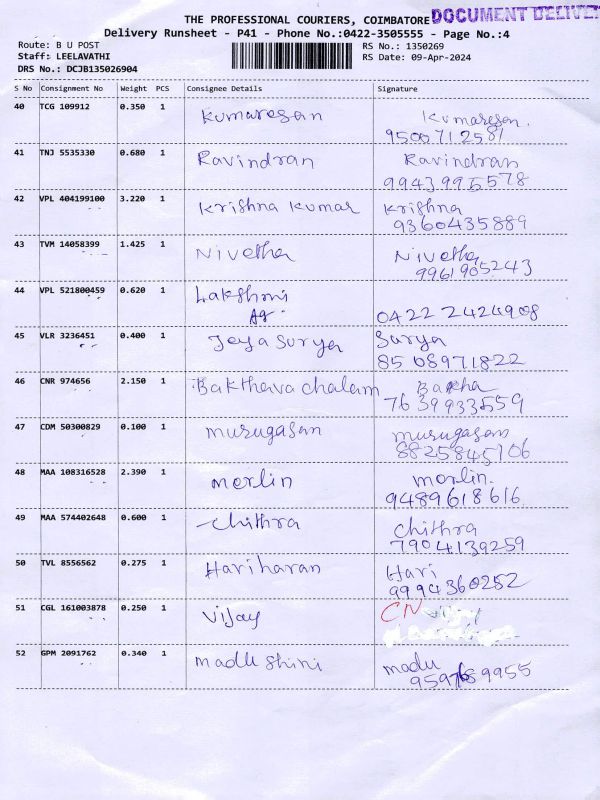 THE PROFESSIONAL COURIERS, COIMBATORE DOCUMENT DELIVE
Delivery Runsheet - P41 - Phone No.:0422-3505555 - Page No.:4
Route: B U POST RS No.: 1350269
Staff: LEELAVATHI RS Date: 09-Apr-2024
DRS No.: DCJB135026904
S No Consignment No Weight PCS Consignee Details Signature
40 TCG 109912 0.350 1 Kumaresan Kumaresan.
9500712581
41 TNJ 5535330 0.680 1 Ravindran Ravindran
9943995578
42 VPL 404199100 3.220 1 Krishna Kumar Krishna
9360435889
43 TVM 14058399 1.425 1 Nivetha Nivetha
9961905243
44 VPL 521800459 0.620 1 Lakshmi
Ag. 0422 2424908
45 VLR 3236451 0.400 1 Jeya Surya Surya
8508971822
46 CNR 974656 2.150 1 Bakthava chalam Baktha
7639933559
47 CDM 50300829 0.100 1 murugasan murugasan
8825845106
48 MAA 108316528 2.390 1 merlin merlin.
9489618616
49 MAA 574402648 0.600 1 chithra chithra
7904139259
50 TVL 8556562 0.275 1 Hariharan Hari
9994360252
51 CGL 161003878 0.250 1 Vijay CN Vijay
52 GPM 2091762 0.340 1 madu shini madu
9597689955